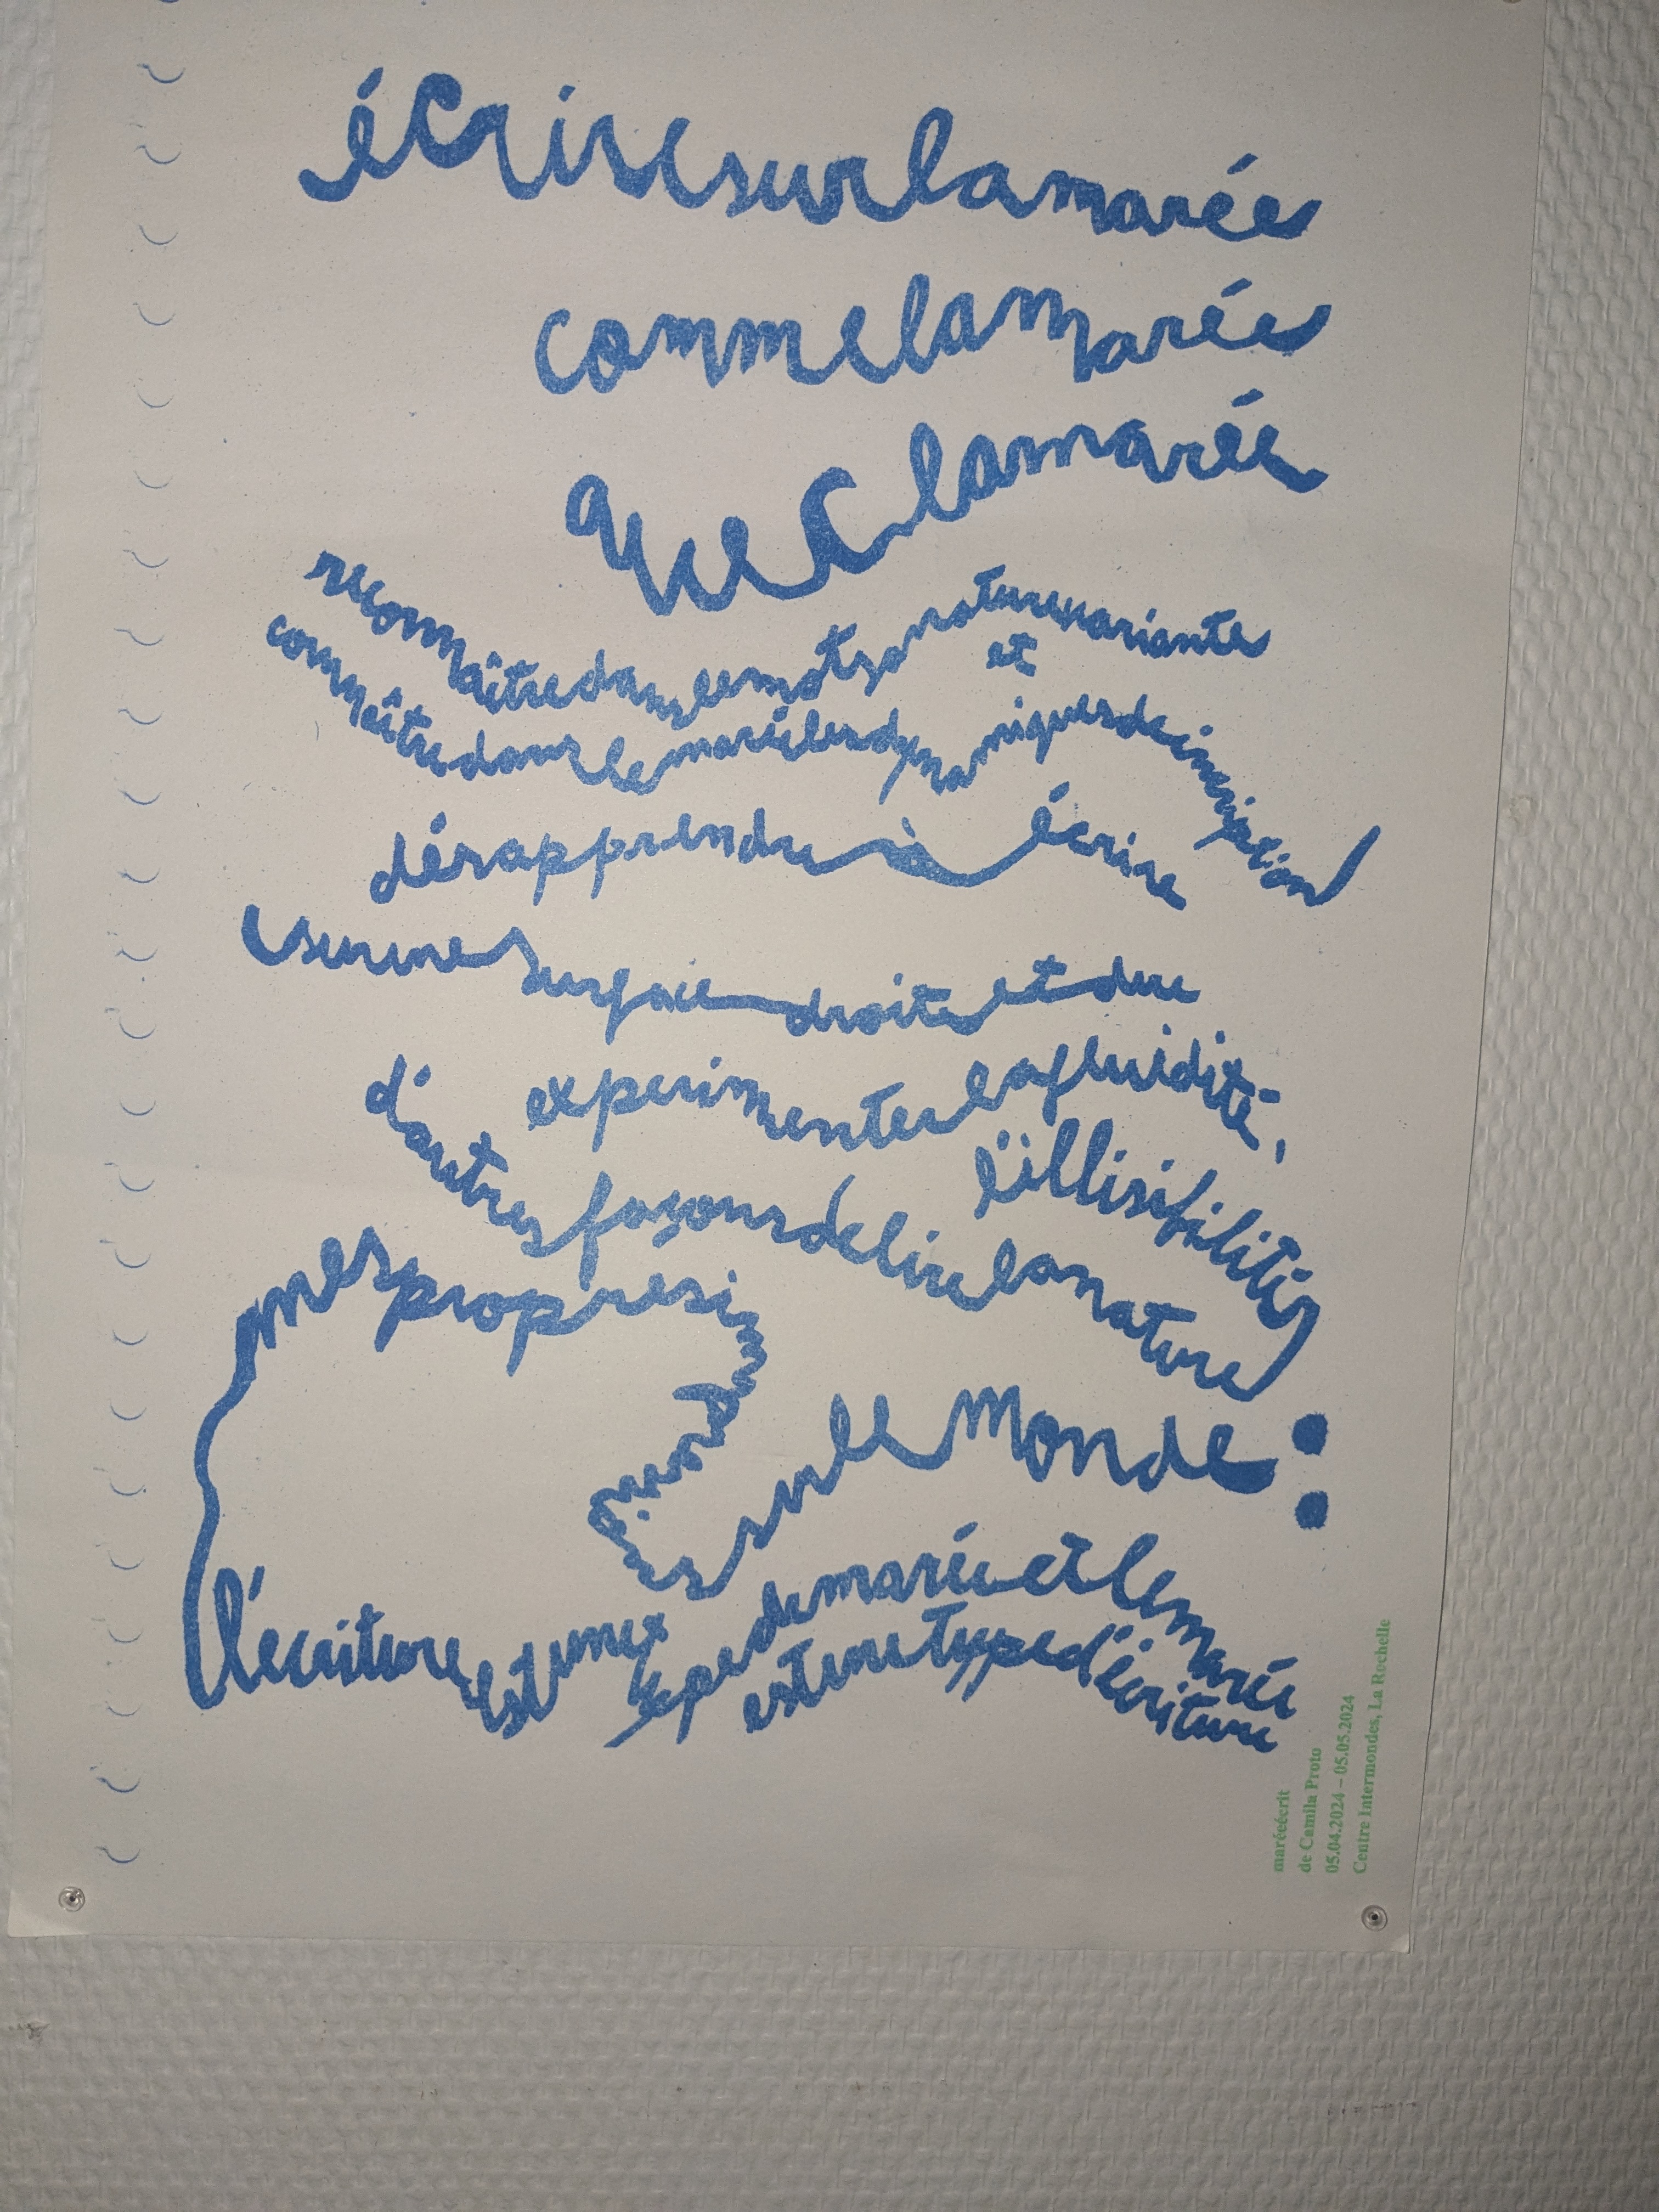 écriresurlamarée
commelamarée
aveclamarée
reconnaîtredanslemotsanaturevariante
et
connaîtredanslemaréelesdynamiquesdeinscription
désapprendreàécrire
surunesurfacedroiteetdure
experimenterlafluidité,
l'illisibilité
d'autresfaçonsdelirelanature
mespropres
surlemonde:
l'écritureestunextypedemaréeetlemarée
estunetyped'écriture
maréeécrit
de Camila Proto
05.04.2024 – 05.05.2024
Centre Intermondes, La Rochelle